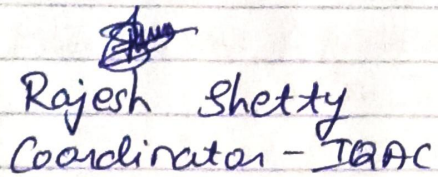 Rajesh Shetty
Coordinator - IQAC